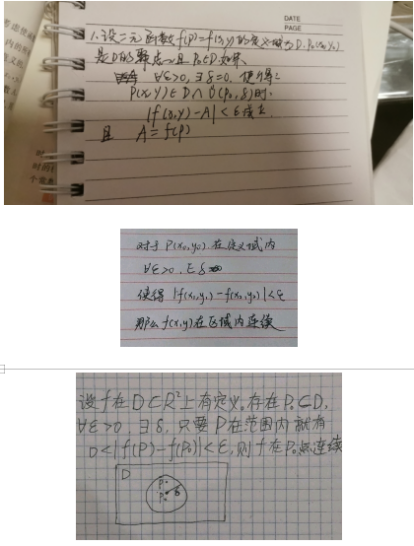 DATE
PAGE
1.设二元函数f(P)=f(x,y)的定义域为D.P₀(x₀,y₀)
是D的聚点 且P₀∈D如果
∀ε>0,∃δ=0,使得
P(x,y)∈D∩Ů(P₀,δ)时
|f(x,y)-A|<ε成立
且 A=f(P)
对于P(x₀,y₀).在定义域内
∀ε>0.E δ
使得|f(x₁,y₁)-f(x₀,y₀)|<ε
那么f(x,y)在区域内连续
设f在D⊂R²上有定义。存在P₀⊂D,
∀ε>0,∃δ,只要P在范围内就有
0<|f(P)-f(P₀)|<ε,则f在P₀点连续
D
P
P₀
δ